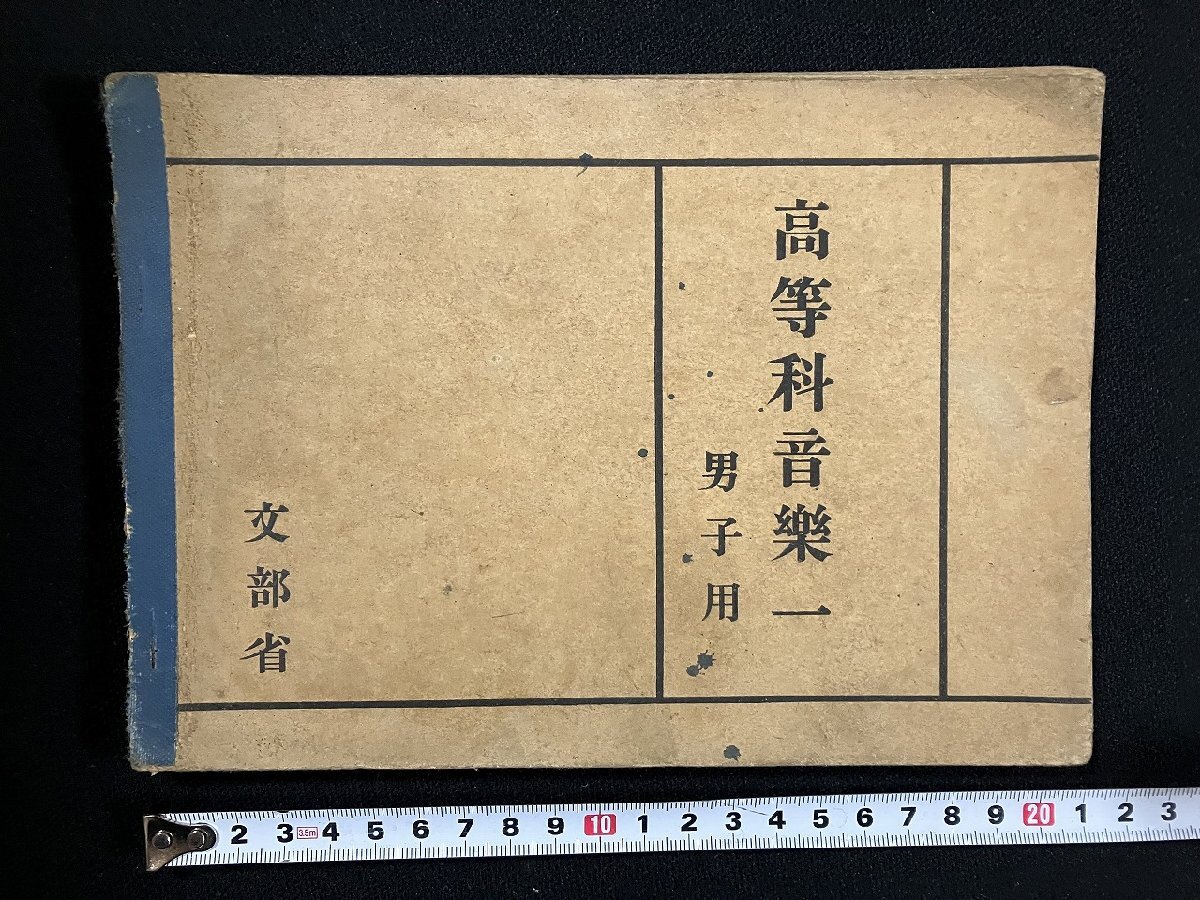 高等科音樂一
男子用
文部省
2 3 3.5m 4 5 6 7 8 9 10 1 2 3 4 5 6 7 8 9 20 1 2 3